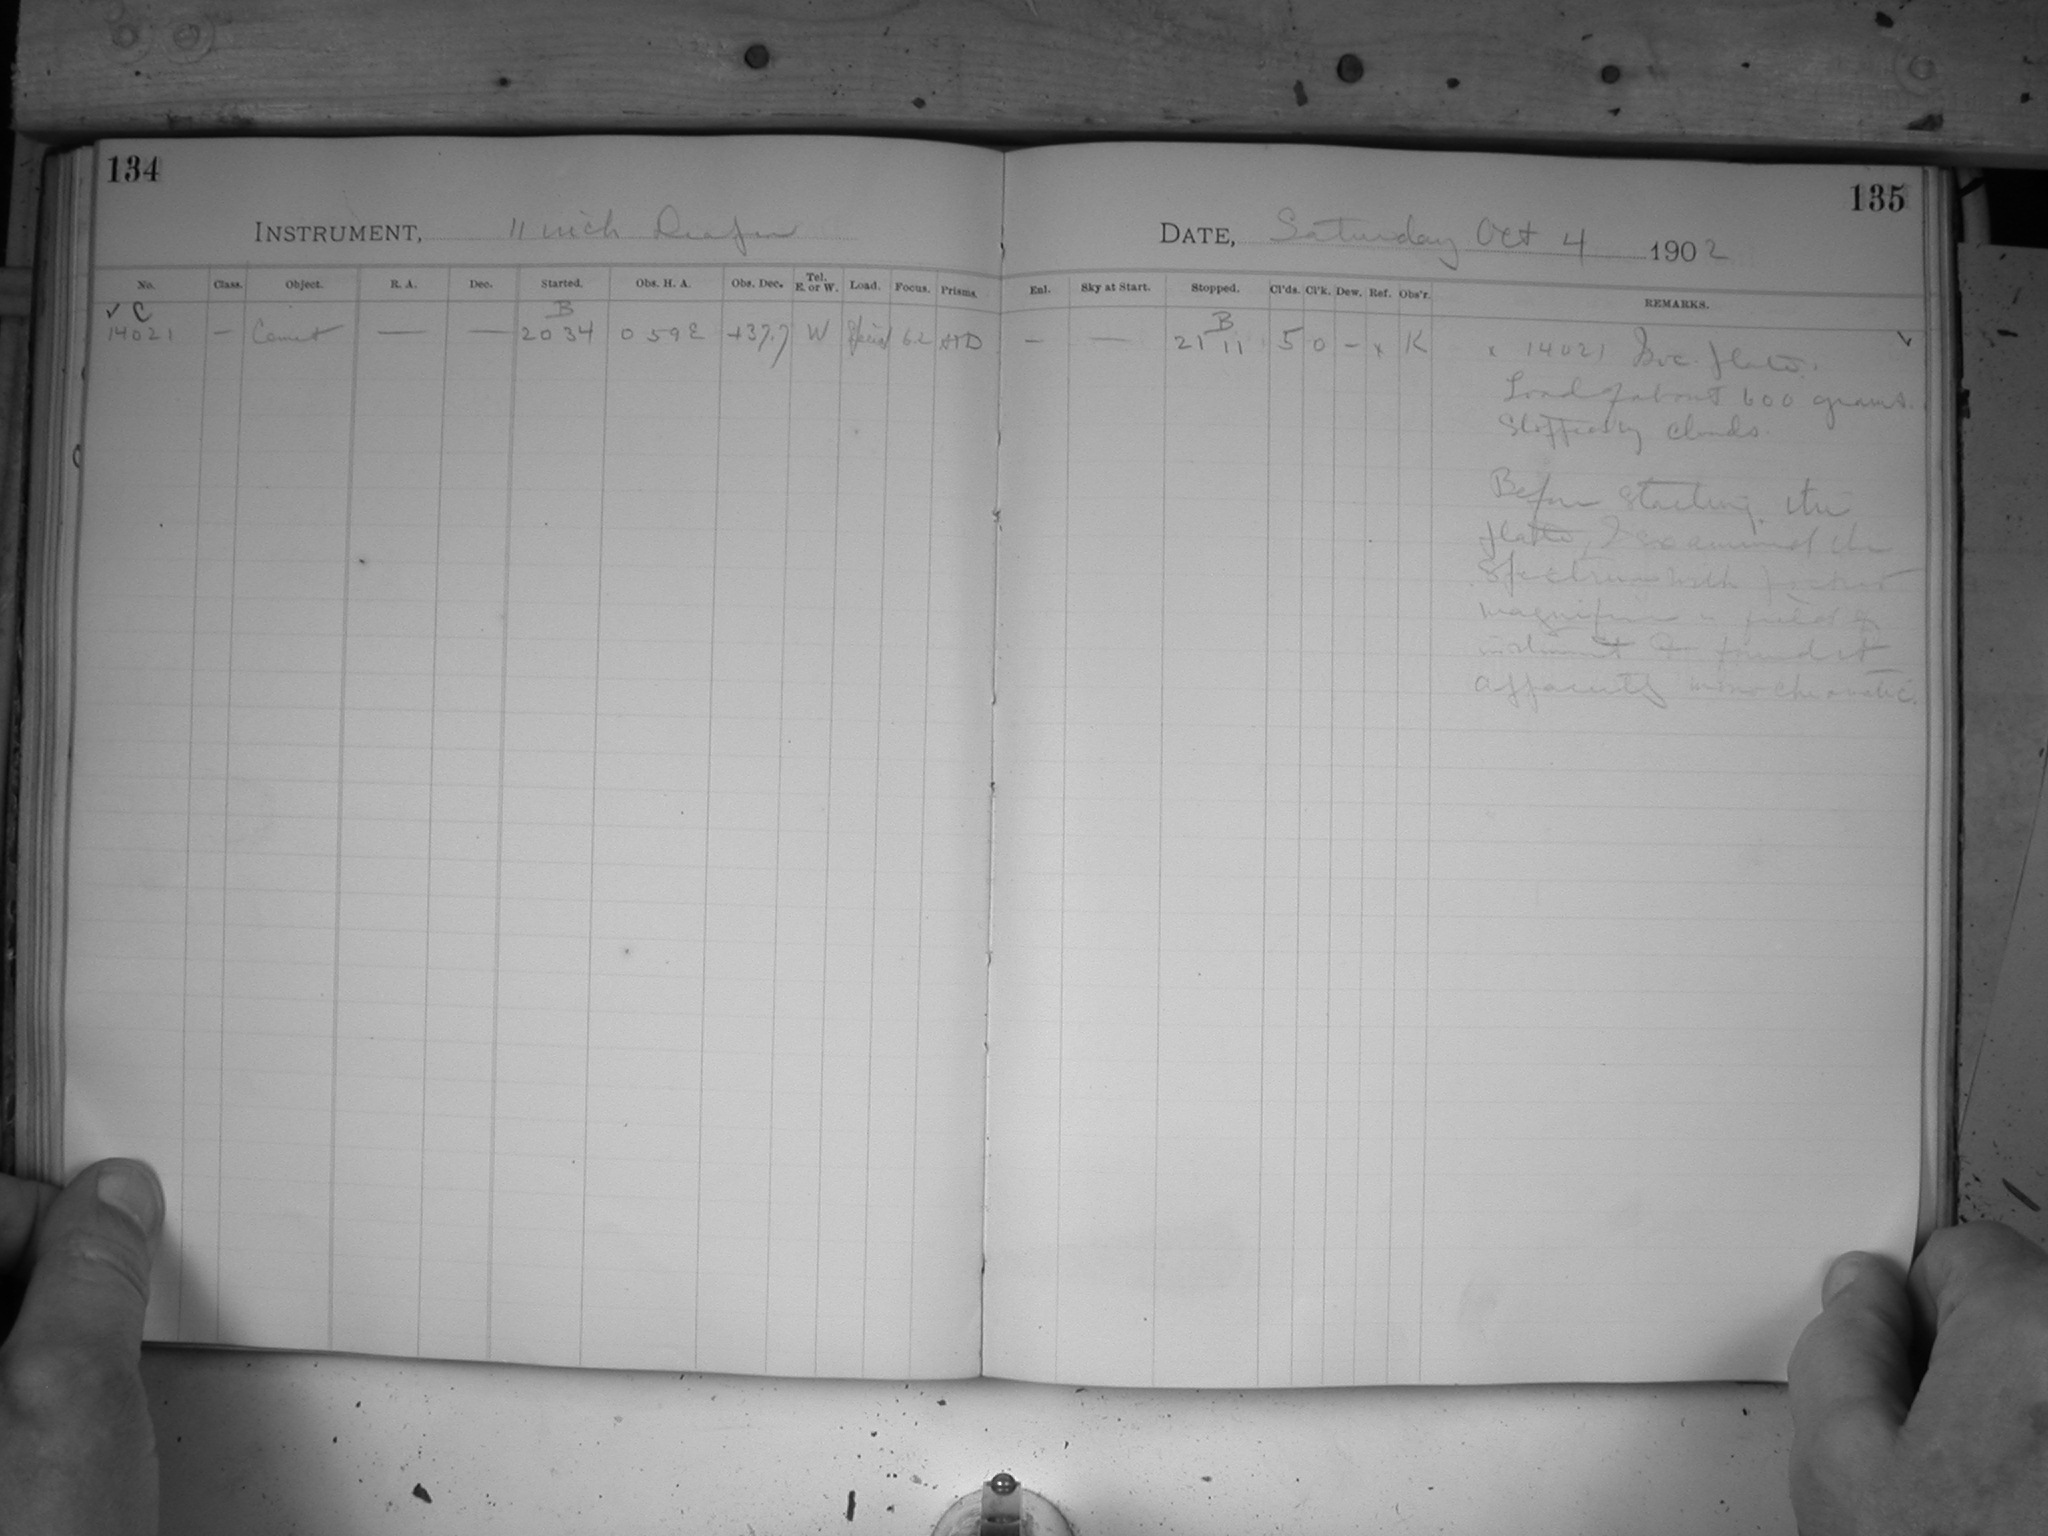 134
135
INSTRUMENT, 11 inch Draper
DATE, Saturday Oct 4 1902
No. Class. Object. R. A. Dec. Started. Obs. H. A. Obs. Dec. Tel. E. or W. Load. Focus. Prisms. Enl. Sky at Start. Stopped. Cl'ds. Cl'k. Dew. Ref. Obs'r. REMARKS.
✓ C B B ✓
14021 — Comet — — 20 34 0 59 E +37.7 W 6.2 — — 21 11 5 0 – x K x 14021 plate.
Load of about 600 grams.
Stopped by clouds.
Before starting this
plate, I examined the
spectrum with pocket
magnifier in field of
instrument & found it
apparently monochromatic.